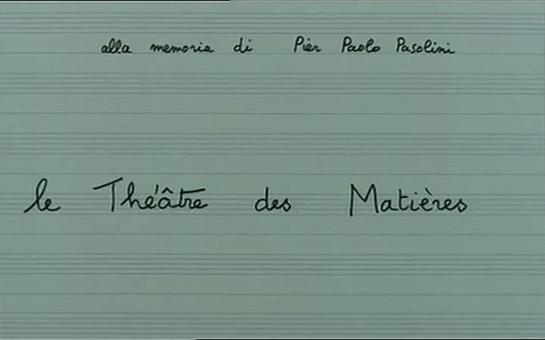 alla memoria di Pier Paolo Pasolini
le Théâtre des Matières